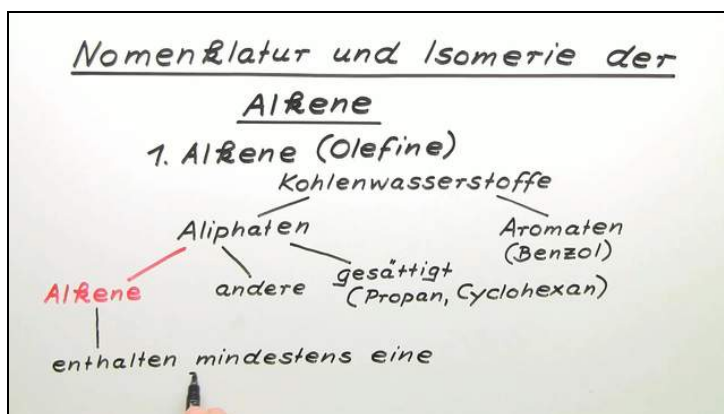 Nomenklatur und Isomerie der
Alkene
1. Alkene (Olefine)
Kohlenwasserstoffe
Aliphaten
Aromaten
(Benzol)
Alkene
andere
gesättigt
(Propan, Cyclohexan)
enthalten mindestens eine